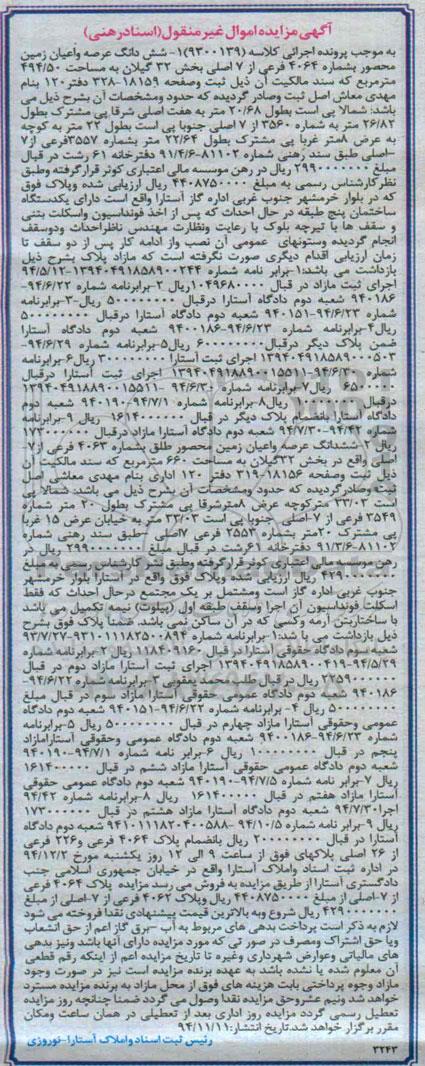 آگهی مزایده اموال غیر منقول (اسناد رهنی)
به موجب پرونده اجرائی کلاسه (۹۳۰۰۱۳۹) ۱- شش دانگ عرصه واعیان زمین
محصور بشماره ۴۰۶۴ فرعی از ۷ اصلی بخش ۳۲ گیلان به مساحت ۴۹۴/۵۰
مترمربع که سند مالکیت آن ذیل ثبت وصفحه ۱۸۱۵۹-۳۲۸ دفتر ۱۲۰ بنام
مهدی معاش اصل ثبت وصادر گردیده که حدود ومشخصات آن بشرح ذیل می
باشد: شمالا پی است بطول ۲۰/۶۸ متر به هفت اصلی شرقا پی مشترک بطول
۲۶/۸۲ متر به شماره ۳۵۶۰ از ۷ اصلی جنوبا پی است بطول ۲۲ متر به کوچه
به عرض ۸متر غربا پی مشترک بطول ۲۲/۶۴ متر بشماره ۳۵۵۷فرعی از۷
-اصلی طبق سند رهنی شماره ۸۱۱۰۲-۹۱/۴/۶ دفترخانه ۶۱ رشت در قبال
مبلغ ۲۹۹۰۰۰۰۰۰۰ ریال در رهن موسسه مالی اعتباری کوثر قرار گرفته وطبق
نظر کارشناس رسمی به مبلغ ۴۴۰۸۷۵۰۰۰۰ ریال ارزیابی شده وپلاک فوق
که در بلوار خرمشهر جنوب غربی اداره گاز آستارا واقع است دارای یکدستگاه
ساختمان پنج طبقه در حال احداث که پس از اخذ فونداسیون واسکلت بتنی
و سقف ها با تیرچه بلوک با رعایت ونظارت مهندس ناظراحداث ودوسقف
انجام گردیده وستونهای عمومی آن نصب واز ادامه کار پس از دو سقف تا
زمان ارزیابی اقدام دیگری صورت نگرفته است که مازاد پلاک بشرح ذیل
بازداشت می باشد: ۱-برابر نامه شماره ۱۳۹۴۰۴۹۱۸۵۸۹۰۰۲۴۴-۹۴/۵/۱۲
اجرای ثبت مازاد در قبال ۱۰۴۹۶۸۰۰۰۰ریال ۲-برابرنامه شماره ۹۴/۶/۲۲-
۹۴۰۱۸۶ شعبه دوم دادگاه آستارا درقبال ۵۰۰۰۰۰۰۰۰ ریال-۳-برابرنامه
شماره ۹۴/۶/۲۳-۹۴۰۱۵۱ شعبه دوم دادگاه آستارا درقبال ۵۰۰۰۰۰۰۰۰
ریال۴-برابرنامه شماره ۹۴/۶/۲۳-۹۴۰۰۱۸۶ شعبه دوم دادگاه آستارا
ضمن پلاک دیگر درقبال ۶۰۰۰۰۰۰۰۰ ریال۵-برابرنامه شماره ۹۴/۶/۲۹-
۱۳۹۴۰۴۹۱۸۵۸۹۰۰۰۵۰۳ اجرای ثبت آستارا ۳۰۰۰۰۰۰۰۰۰ریال۶-برابرنامه
شماره ۹۴/۶/۳۰-۱۳۹۴۰۴۹۱۸۸۹۰۰۱۵۵۱۱ اجرای ثبت آستارا درقبال
ریال۷-برابرنامه شماره ۹۴/۶/۳۰-۱۳۹۴۰۴۹۱۸۸۹۰۰۱۵۵۱۱
درقبال ریال۸-برابرنامه شماره ۹۴/۷/۱-۹۴۰۱۹۰ شعبه دوم
دادگاه آستارا بانضمام پلاک دیگر در قبال ۱۶۱۴۰۰۰۰۰ ریال ۹-برابرنامه
شماره ۹۴/۴۲-۹۴/۷/۳۰ شعبه دوم دادگاه آستارا مازاد درقبال ۱۷۳۰۰۰۰۰۰
ریال ۲-ششدانگ عرصه واعیان زمین محصور طلق بشماره ۴۰۶۳ فرعی از۷
اصلی واقع در بخش ۳۲گیلان به مساحت ۶۶۰ مترمربع که سند مالکیت آن
ذیل ثبت وصفحه ۱۸۱۵۶-۳۱۹ دفتر ۱۲۰ اداری بنام مهدی معاشی اصل
ثبت وصادرگردیده که حدود ومشخصات آن بشرح ذیل می باشد: شمالا پی
است ۳۳/۰۳ مترکوچه عرض ۸مترشرقا پی مشترک بطول ۲۰ متر شماره
۳۵۴۹ فرعی از ۷-اصلی جنوبا پی است ۳۳/۰۳ متر به خیابان عرض ۱۵ غربا
پی مشترک ۲۰متر بشماره ۲۵۵۳ فرعی ۷اصلی -طبق سند رهنی شماره
۸۱۱۰۲-۹۱/۳/۶ دفترخانه ۶۱رشت در قبال مبلغ ۲۹۹۰۰۰۰۰۰۰ ریال در
رهن موسسه مالی اعتباری کوثر قرارگرفته وطبق نظر کارشناس رسمی به مبلغ
۴۲۹۰۰۰۰۰۰۰ ریال ارزیابی شده وپلاک فوق واقع در آستارا بلوار خرمشهر
جنوب غربی اداره گاز است ومشتمل بر یک مجتمع درحال احداث که فقط
اسکلت فونداسیون آن اجرا وسقف طبقه اول (پیلوت) نیمه تکمیل می باشد
با ساختاربتن آرمه وکسی که در آن ساکن نمی باشد. ضمنا پلاک فوق بشرح
ذیل بازداشت می با شد: ۱-برابرنامه شماره ۹۳۱۰۱۱۱۸۲۵۰۰۸۹۴-۹۳/۷/۲۷
شعبه سوم دادگاه حقوقی آستارا در قبال ۱۱۸۴۰۹۱۶۰ ریال ۲-برابرنامه شماره
۹۴/۵/۲۹-۱۳۹۴۰۴۹۱۸۵۸۹۰۰۰۴۱۹ اجرای ثبت آستارا مازاد دوم در قبال
۲۲۵۹۰۰۰۰۰۰ ریال در قبال طلب محمد یعقوبی ۳-برابرنامه شماره ۹۴/۶/۲۲-
۹۴۰۱۸۶ شعبه دوم دادگاه عمومی حقوقی آستارا مازاد سوم در قبال مبلغ
۵۰۰۰۰۰۰۰۰ ریال ۴- برابرنامه شماره ۹۴/۶/۲۲-۹۴۰۱۵۱ شعبه دوم دادگاه
عمومی وحقوقی آستارا مازاد چهارم در قبال ۵۰۰۰۰۰۰۰۰ ریال ۵-برابرنامه
شماره ۹۴/۶/۲۳-۹۴۰۰۱۸۶ شعبه دوم دادگاه عمومی وحقوقی آستارامازاد
پنجم در قبال ۱۰۰۰۰۰۰۰۰۰ ریال ۶-برابر نامه شماره ۹۴/۷/۱-۹۴۰۱۹۰
شعبه دوم دادگاه عمومی حقوقی آستارا مازاد ششم در قبال ۱۶۱۴۰۰۰۰۰
ریال ۷-برابر نامه شماره ۹۴/۷/۵-۹۴۰۱۹۰ شعبه دوم دادگاه عمومی حقوقی
آستارا مازاد هفتم در قبال ۱۶۱۴۰۰۰۰۰ ریال ۸-برابرنامه شماره ۹۴/۴۲
اجرا-۹۴/۷/۳۰ شعبه دوم دادگاه آستارا مازاد هشتم در قبال ۱۷۳۰۰۰۰۰۰
ریال ۹-برابر نامه شماره ۹۴/۱۰/۵-۹۴۱۰۱۱۱۸۲۰۴۰۰۵۸۸ شعبه دوم دادگاه
آستارا در قبال ۲۰۰۰۰۰۰۰۰۰ ریال بانضمام پلاک ۴۰۶۴ فرعی و۲۲۶ فرعی
از ۲۶ اصلی پلاکهای فوق از ساعت ۹ الی ۱۲ روز یکشنبه مورخ ۹۴/۱۲/۲
در اداره ثبت اسناد واملاک آستارا واقع در خیابان جمهوری اسلامی جنب
دادگستری آستارا از طریق مزایده به فروش می رسد مزایده پلاک ۴۰۶۴ فرعی
از ۷-اصلی از مبلغ ۴۴۰۸۷۵۰۰۰۰ ریال وپلاک ۴۰۶۲ فرعی از ۷-اصلی از مبلغ
۴۲۹۰۰۰۰۰۰۰ ریال شروع وبه بالاترین قیمت پیشنهادی نقدا فروخته می شود
لازم به ذکر است پرداخت بدهی های مربوط به آب -برق گاز اعم از حق انشعاب
ویا حق اشتراک ومصرف در صور تی که مورد مزایده دارای آنها باشد ونیز بدهی
های مالیاتی وعوارض شهرداری وغیره تا تاریخ مزایده اعم از اینکه رقم قطعی
آن معلوم شده یا نشده باشد به عهده برنده مزایده است نیز در صورت وجود
مازاد وجوه پرداختی بابت هزینه های فوق از محل مازاد به برنده مزایده مسترد
خواهد شد ونیم عشروحق مزایده نقدا وصول می گردد ضمنا چنانچه روز مزایده
تعطیل رسمی گردد مزایده روز اداری بعد از تعطیلی در همان ساعت ومکان
مقرر برگزار خواهد شد. تاریخ انتشار: ۹۴/۱۱/۱۱
رئیس ثبت اسناد واملاک آستارا-نوروزی
۳۲۴۳